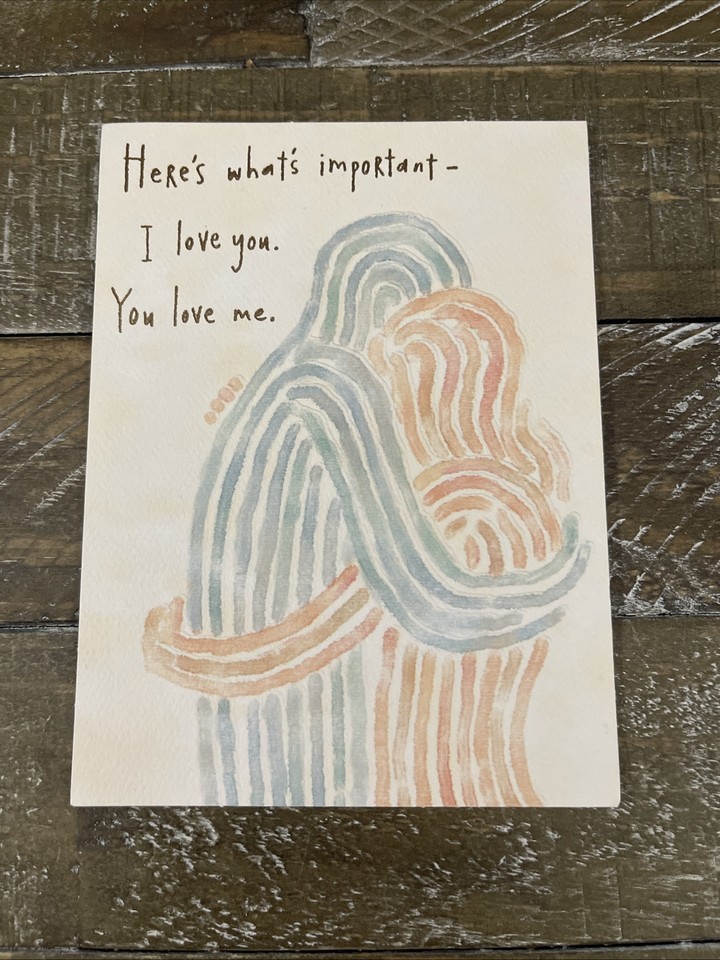 Here's what's important-
I love you.
You love me.